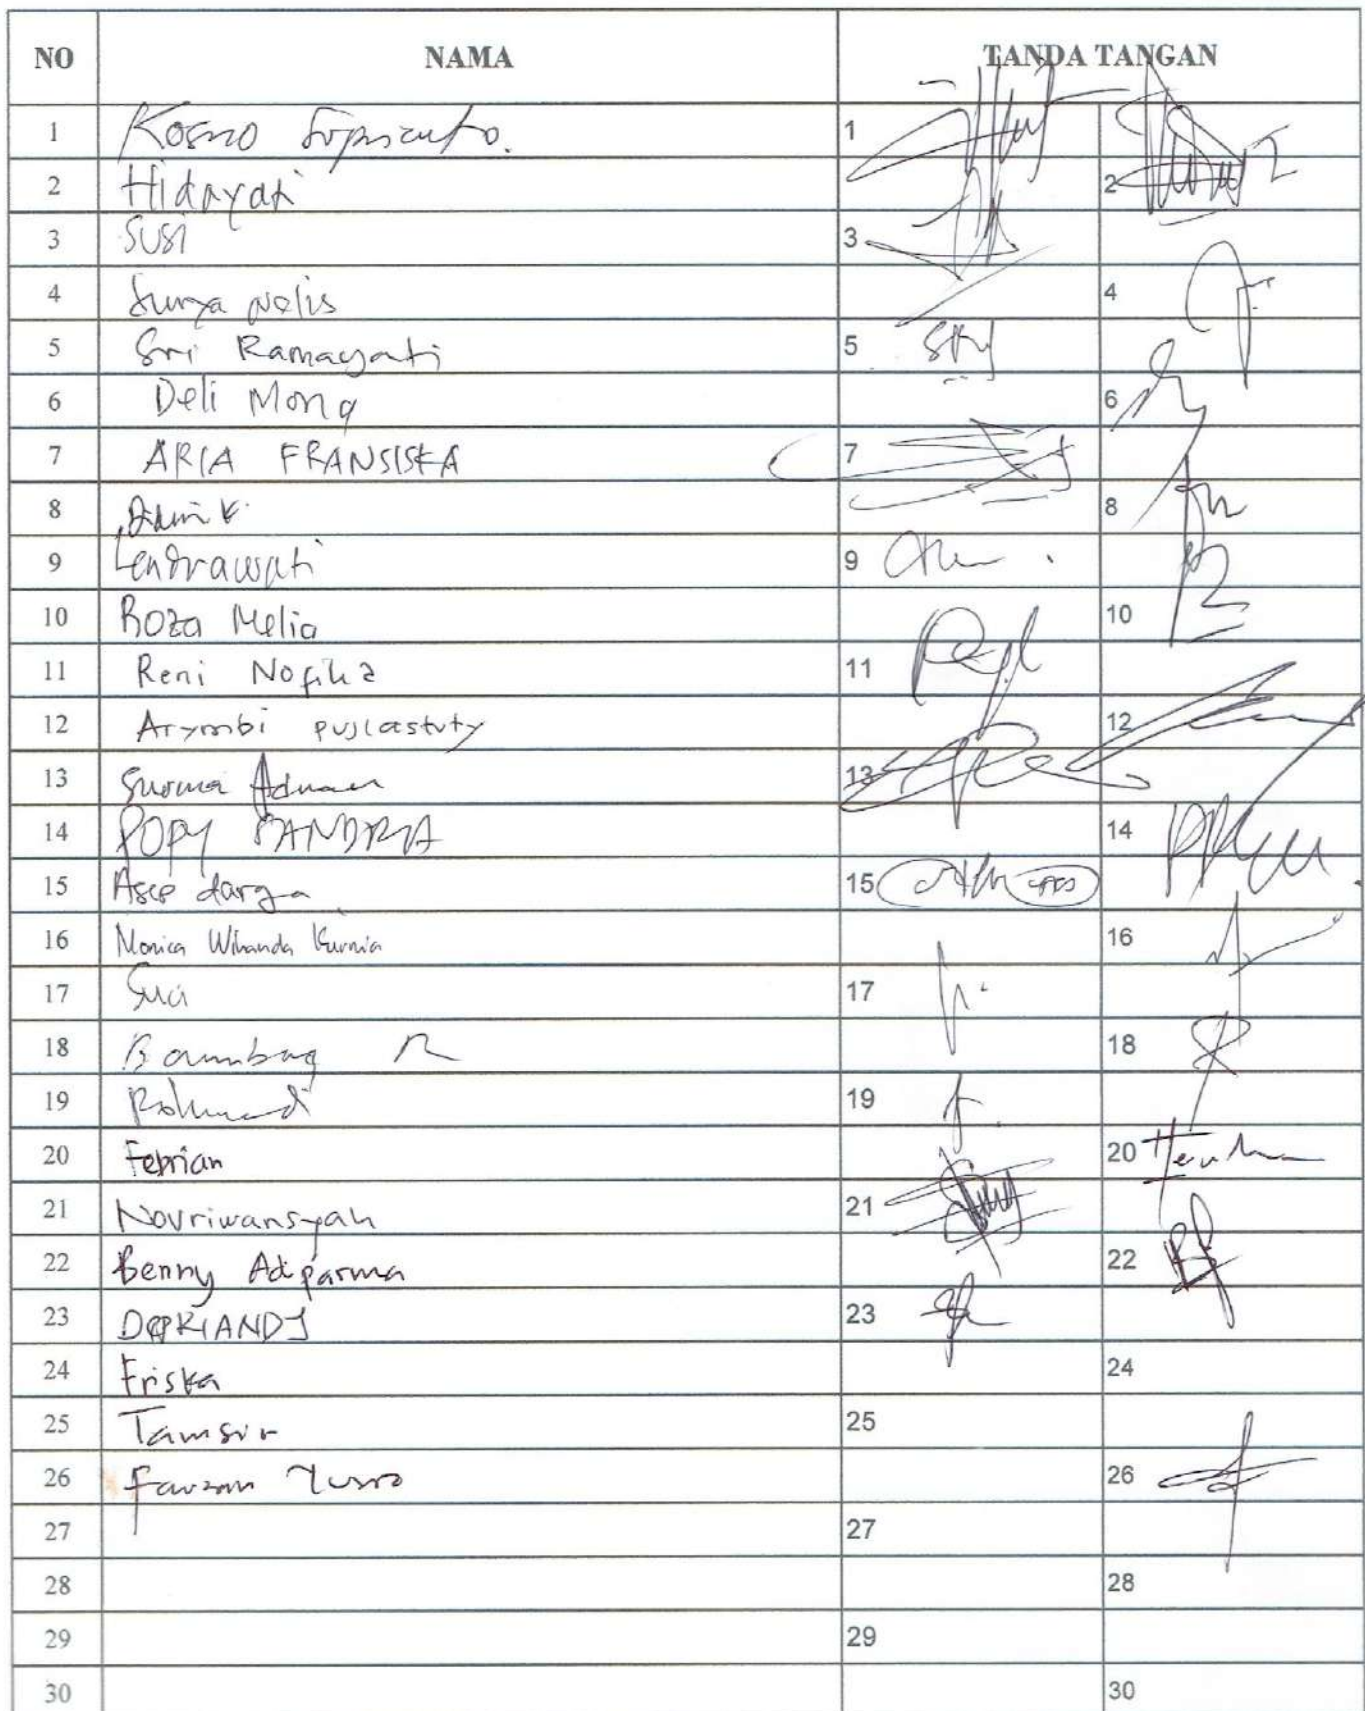 NO NAMA TANDA TANGAN
1 Kosno Suprianto. 1
2 Hidayati 2
3 Susi 3
4 Surya Nelis 4
5 Sri Ramayati 5
6 Deli Mona 6
7 ARIA FRANSISKA 7
8 8
9 Lendrawati 9
10 Roza Melia 10
11 Reni Nofiha 11
12 Arymbi pujiastuty 12
13 Adnan 13
14 POPY SANDRIA 14
15 Asep darga 15
16 Monica Winanda Kurnia 16
17 Suci 17
18 Bambang R 18
19 Rohmadi 19
20 Feprian 20
21 Novriwansyah 21
22 Benny Adiparma 22
23 DEPRIANDI 23
24 Friska 24
25 Tamsir 25
26 Fauzan 26
27 27
28 28
29 29
30 30